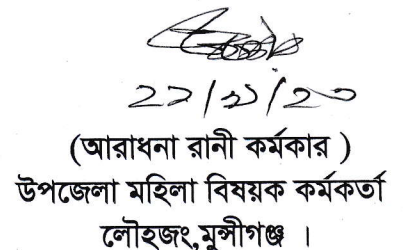 (আরাধনা রানী কর্মকার )
উপজেলা মহিলা বিষয়ক কর্মকর্তা
লৌহজং,মুন্সীগঞ্জ ।